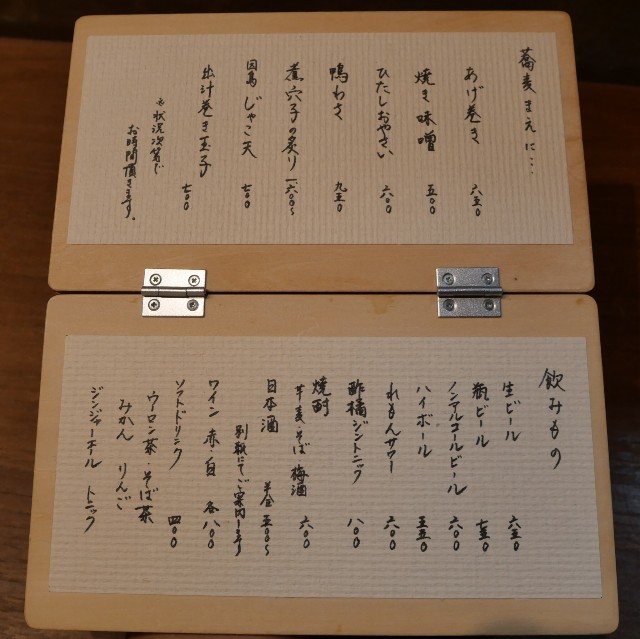 蕎麦まえに…
あげ巻き 六五〇
焼き味噌 五〇〇
ひたしおやさい 六〇〇
鴨わさ 九五〇
煮穴子の炙り 一、六〇〇〜
因島じゃこ天 七〇〇
出汁巻き玉子 七〇〇
※状況次第で
お時間頂きます。
飲みもの
生ビール 六五〇
瓶ビール 七五〇
ノンアルコールビール 六〇〇
ハイボール 五五〇
れもんサワー 六〇〇
酢橘ジントニック 八〇〇
焼酎
芋・麦・そば 梅酒 六〇〇
日本酒 半合 五〇〇〜
別紙にてご案内します
ワイン 赤・白 各八〇〇
ソフトドリンク 四〇〇
ウーロン茶・そば茶
みかん りんご
ジンジャーエール トニック